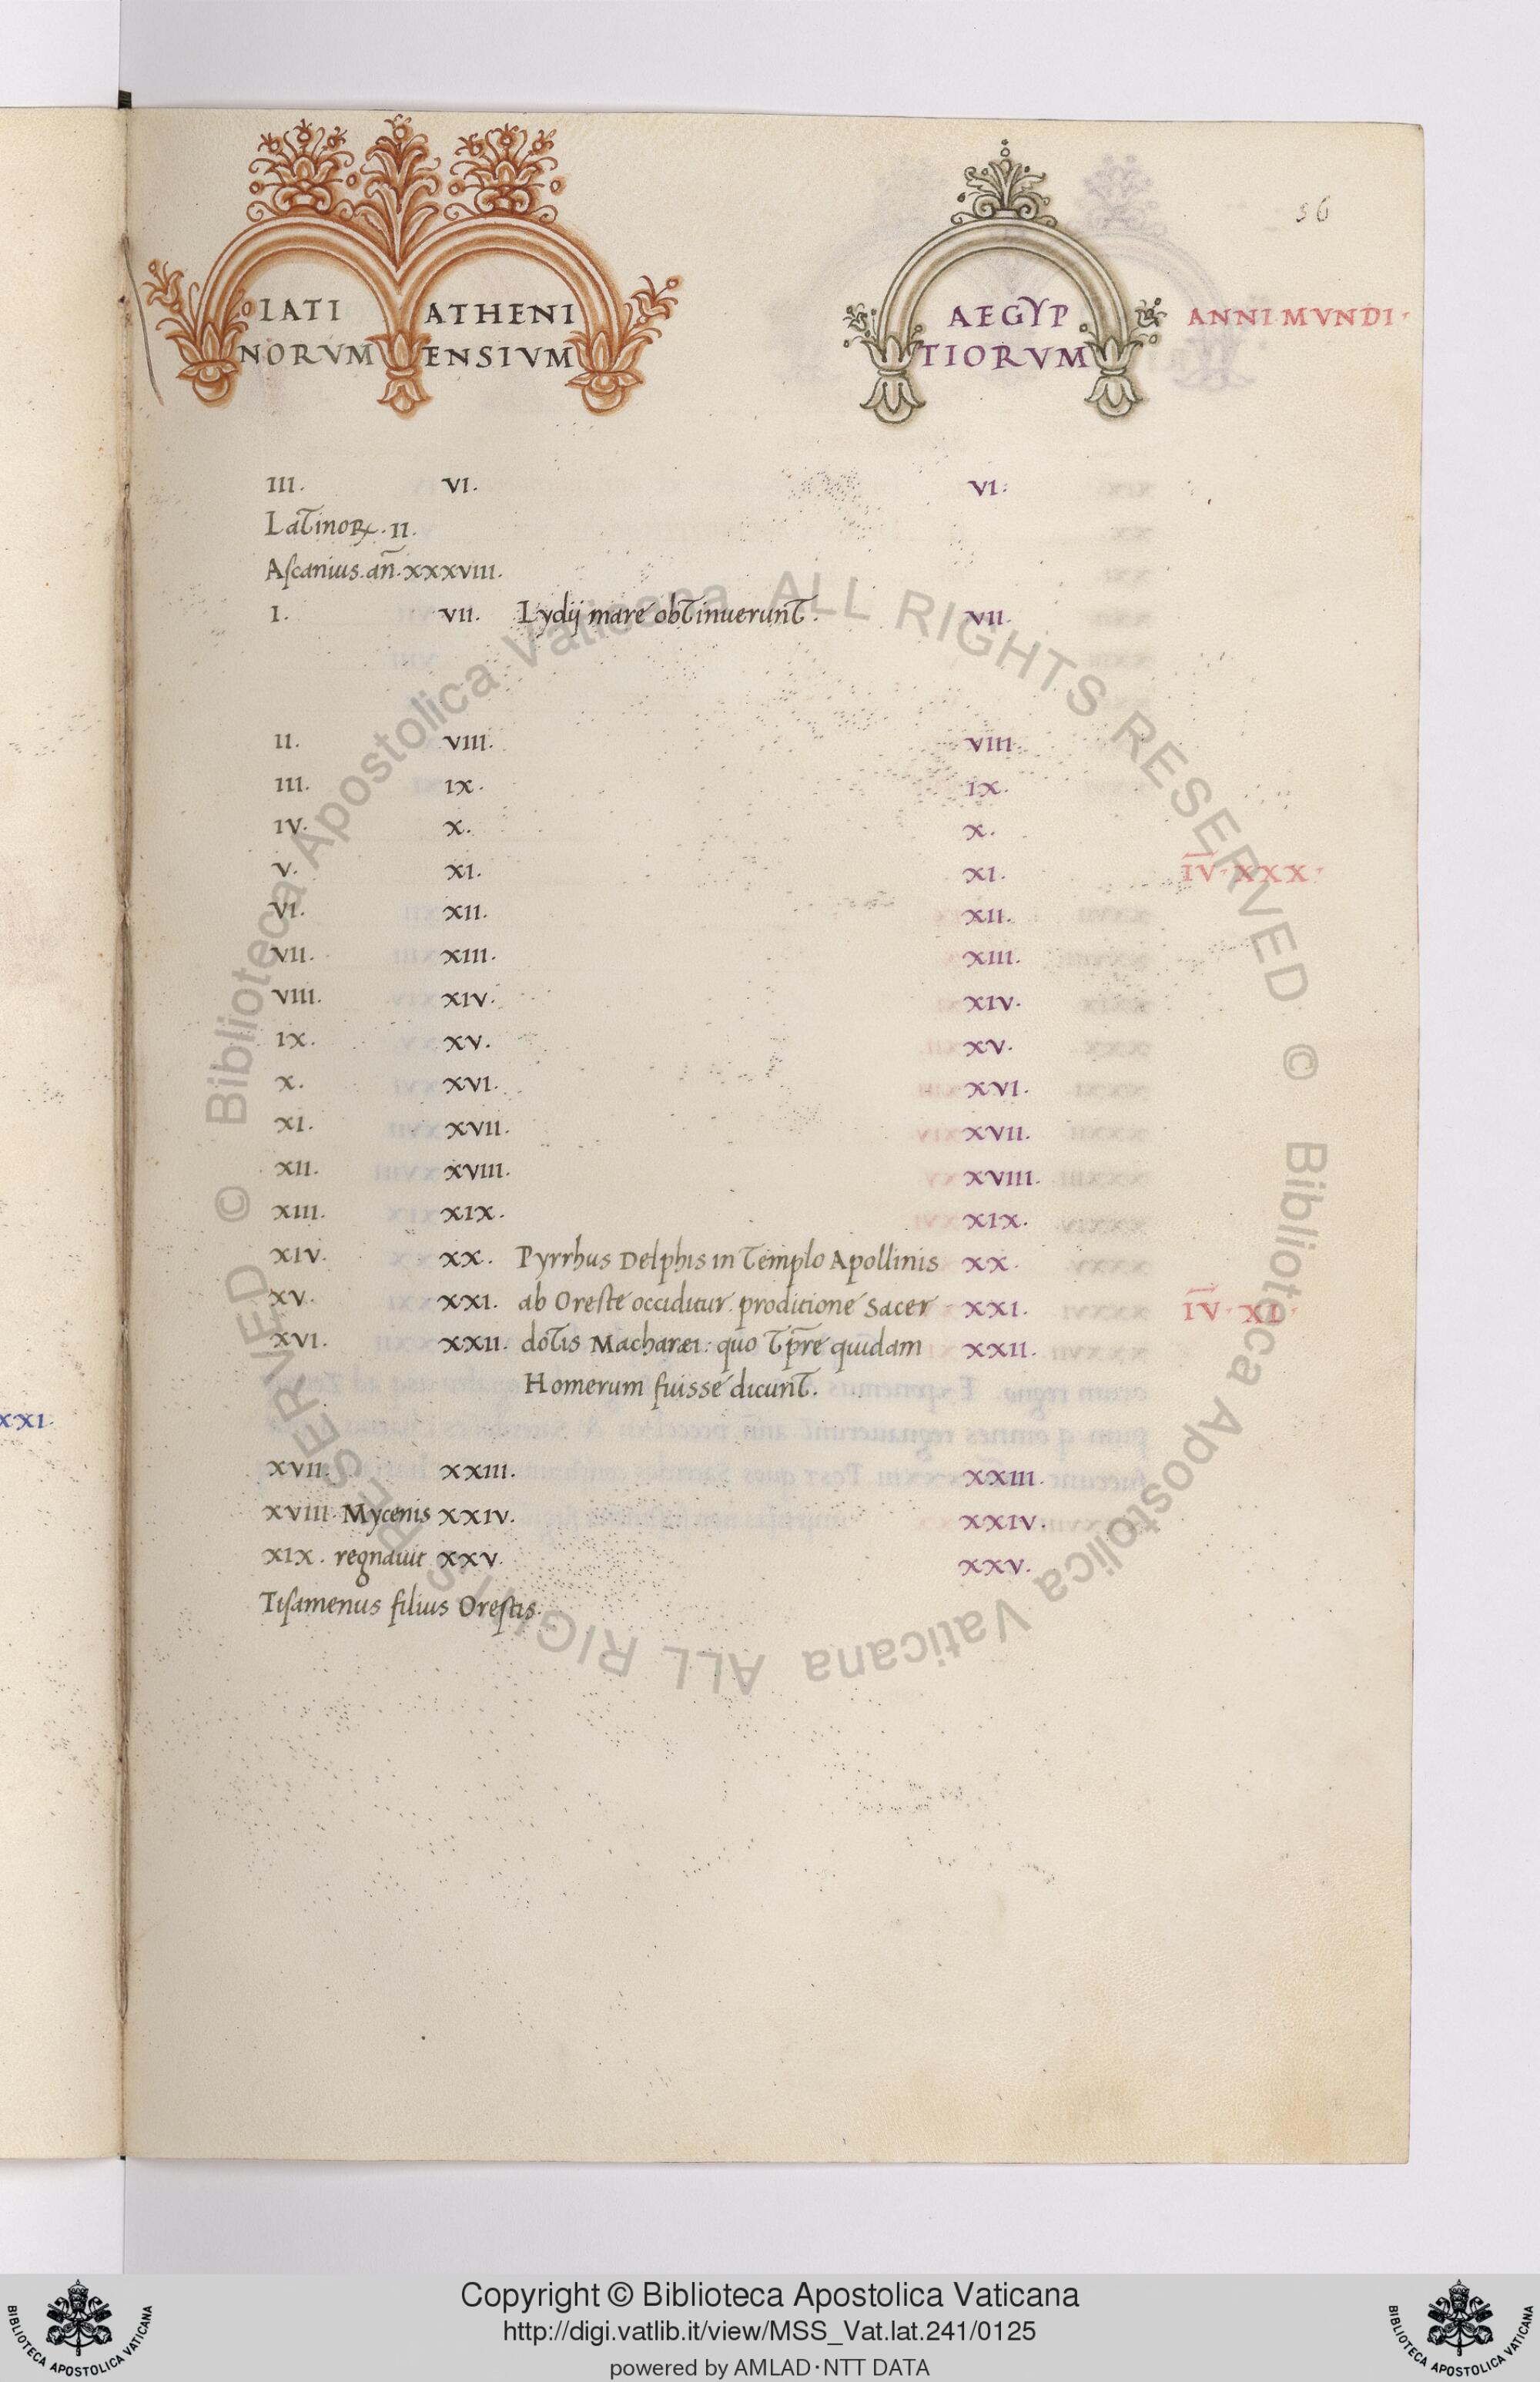 56
LATI ATHENI AEGYP ANNI MVNDI·
NORVM ENSIVM TIORVM
III. VI. VI:
Latinoꝝ. II.
Aſcanius. an̄. XXXVIII.
I. VII. Lydij mare obtinuerunt. VII.
II. VIII. VIII.
III. IX. IX.
IV. X. X.
V. XI. XI. I̅V̅· XXX·
VI. XII. XII.
VII. XIII. XIII.
VIII. XIV. XIV.
IX. XV. XV.
X. XVI. XVI.
XI. XVII. XVII.
XII. XVIII. XVIII.
XIII. XIX. XIX.
XIV. XX. Pyrrhus Delphis in templo Apollinis XX.
XV. XXI. ab Oreſte occiditur. proditione sacer XXI. I̅V̅· XL·
XVI. XXII. dotis Macharæi: quo tp̄re quidam XXII.
Homerum fuisse dicunt.
XXI.
XVII. XXIII. XXIII.
XVIII. Mycenis XXIV. XXIV.
XIX. regnauit XXV. XXV.
Tiſamenus filius Oreſtis.
© Biblioteca Apostolica Vaticana ALL RIGHTS RESERVED
© Biblioteca Apostolica Vaticana ALL RIGHTS RESERVED
Copyright © Biblioteca Apostolica Vaticana
http://digi.vatlib.it/view/MSS_Vat.lat.241/0125
powered by AMLAD·NTT DATA
BIBLIOTECA APOSTOLICA VATICANA
BIBLIOTECA APOSTOLICA VATICANA